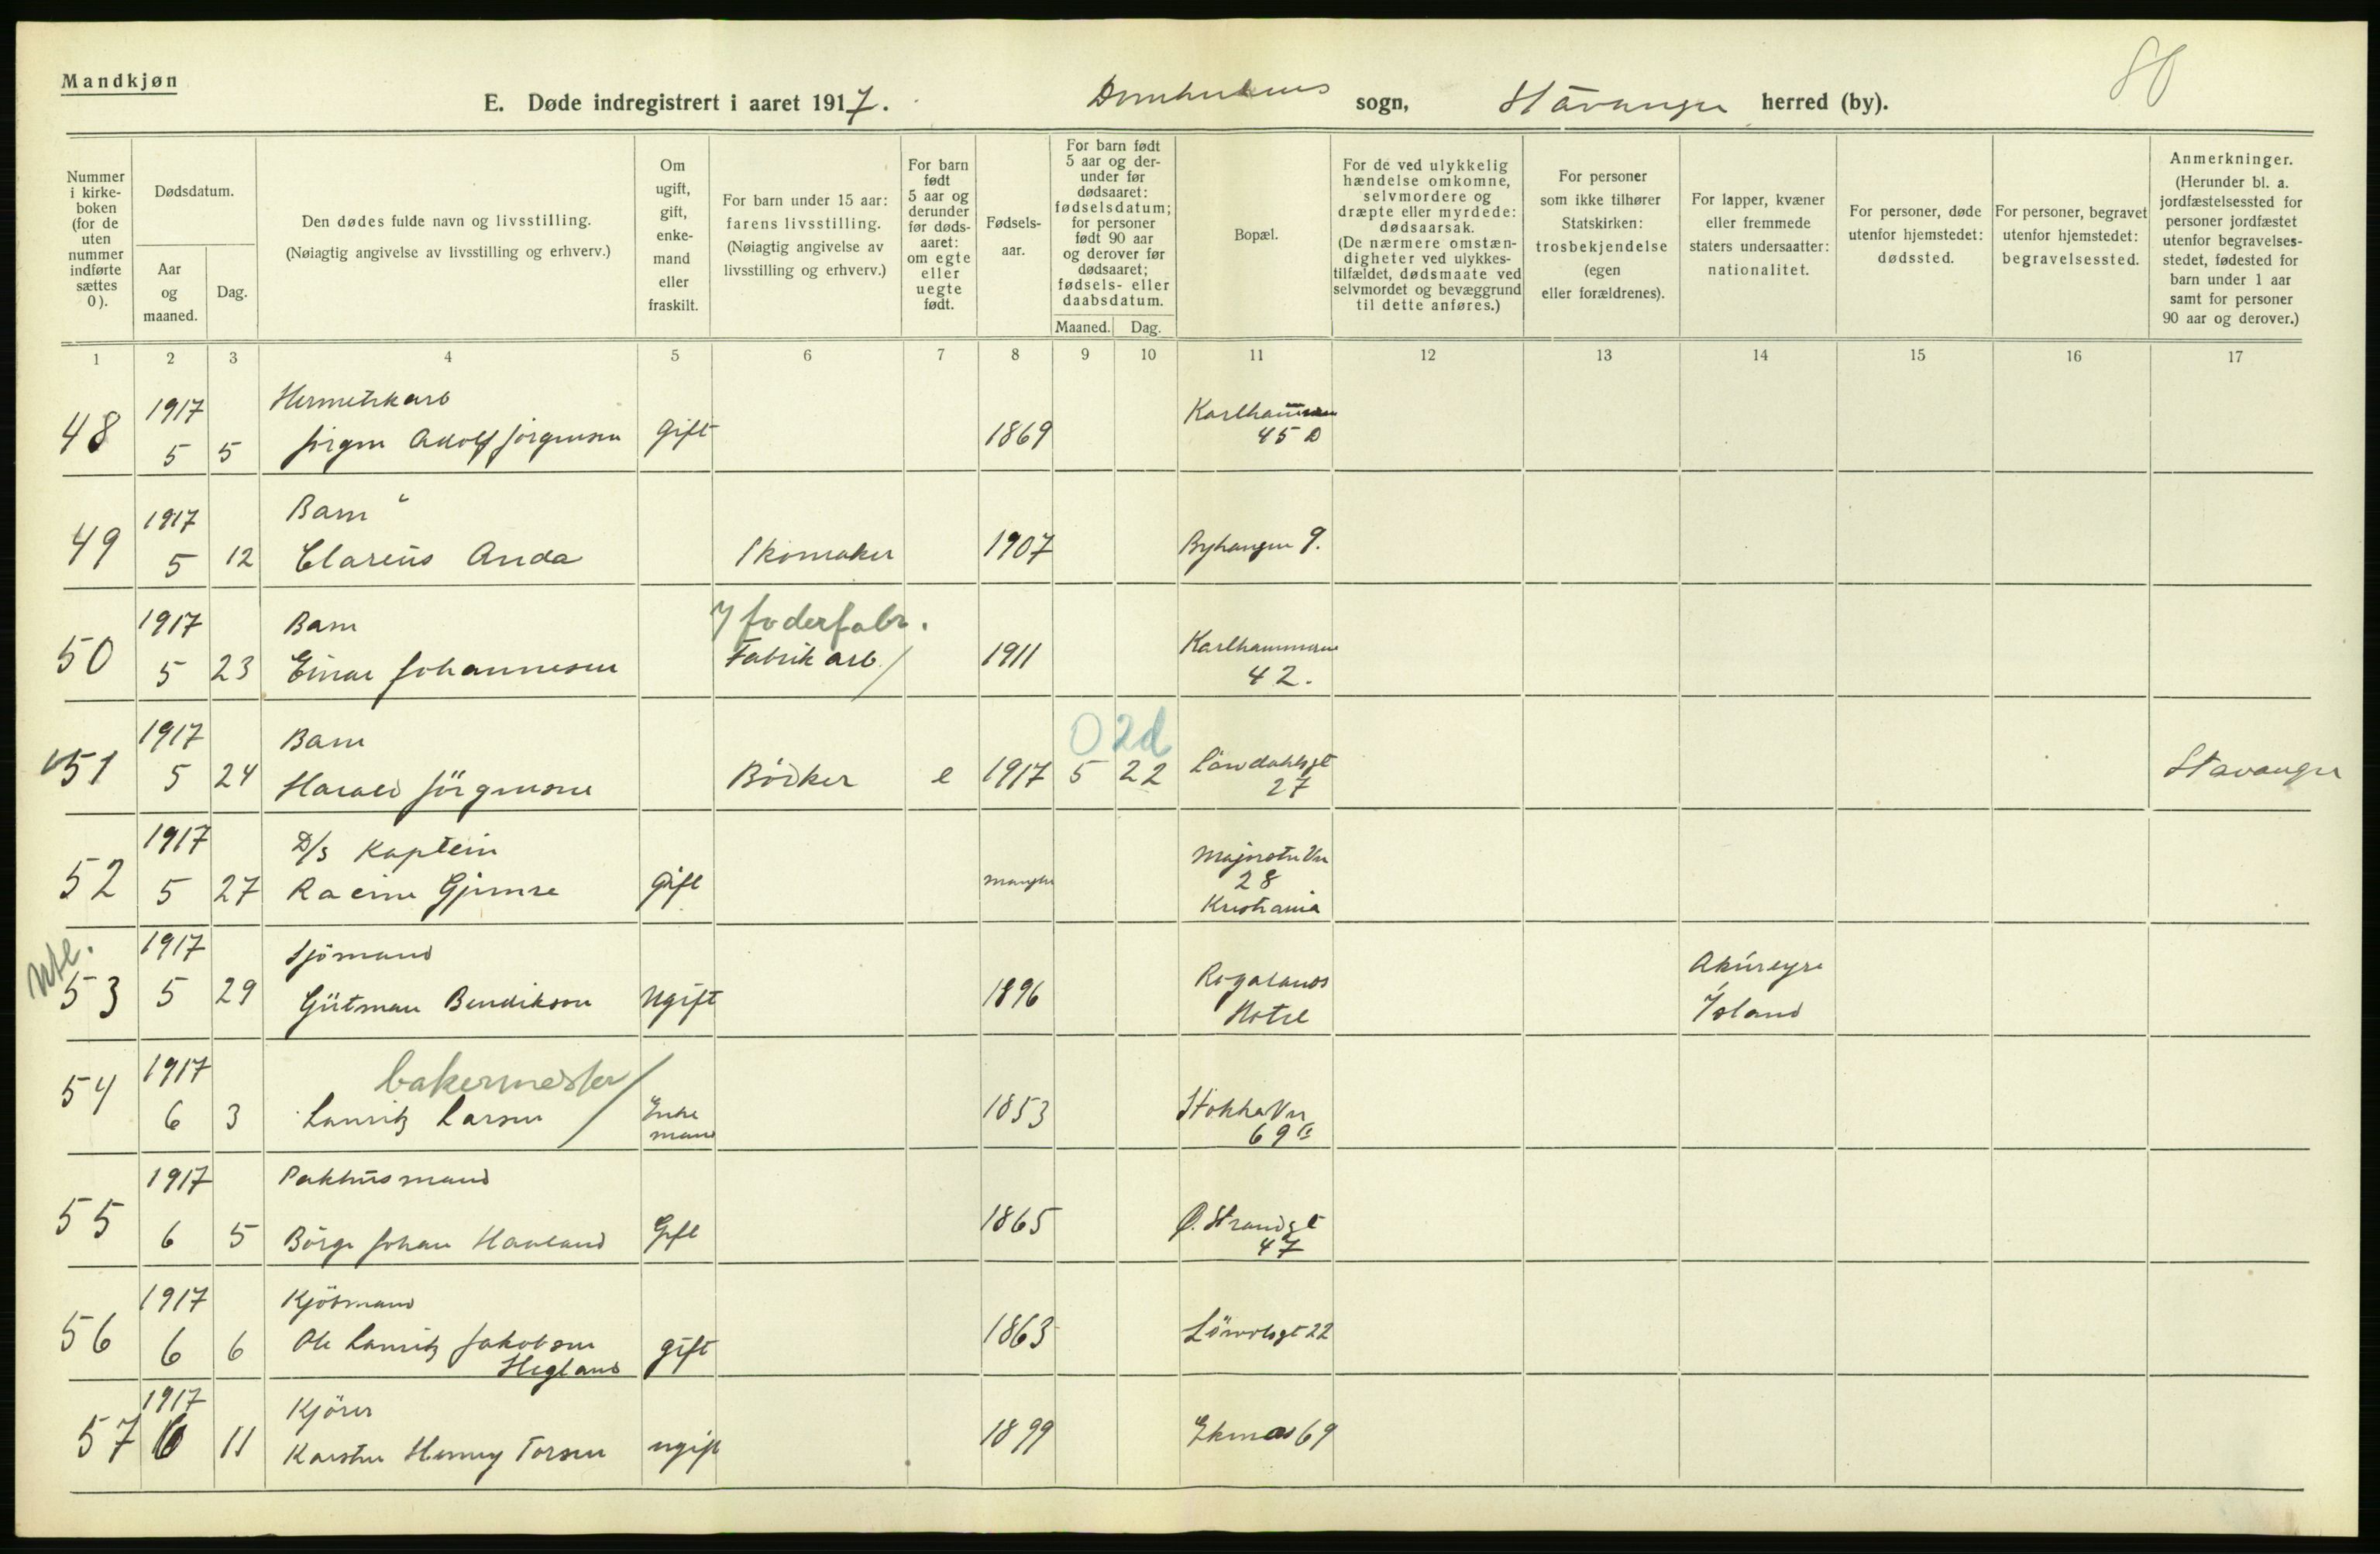 Mandkjøn
E. Døde indregistrert i aaret 1917. Domkirkens sogn, Stavanger herred (by).
80
Nummer i kirke-boken (for de uten nummer indførte sættes 0).
Dødsdatum.
Aar og maaned.
Dag.
Den dødes fulde navn og livsstilling.
(Nøiagtig angivelse av livsstilling og erhverv.)
Om ugift, gift, enke-mand eller fraskilt.
For barn under 15 aar: farens livsstilling.
(Nøiagtig angivelse av livsstilling og erhverv.)
For barn født 5 aar og derunder før døds-aaret: om egte eller uegte født.
Fødsels-aar.
For barn født 5 aar og der-under før dødsaaret: fødselsdatum; for personer født 90 aar og derover før dødsaaret; fødsels- eller daabsdatum.
Maaned. Dag.
Bopæl.
For de ved ulykkelig hændelse omkomne, selvmordere og dræpte eller myrdede: dødsaarsak.
(De nærmere omstæn-digheter ved ulykkes-tilfældet, dødsmaate ved selvmordet og bevæggrund til dette anføres.)
For personer som ikke tilhører Statskirken: trosbekjendelse (egen eller forældrenes).
For lapper, kvæner eller fremmede staters undersaatter: nationalitet.
For personer, døde utenfor hjemstedet: dødssted.
For personer, begravet utenfor hjemstedet: begravelsessted.
Anmerkninger.
(Herunder bl. a. jordfæstelsessted for personer jordfæstet utenfor begravelses-stedet, fødested for barn under 1 aar samt for personer 90 aar og derover.)
1 2 3 4 5 6 7 8 9 10 11 12 13 14 15 16 17
1917 Hermetikarb Karlhammeren
48 5 5 Jörgen Adolf Jörgensen Gift 1869 45 D
1917 Barn
49 5 12 Clarius Anda Skomaker 1907 Byhaugen 9.
1917 Barn foderfabr. Karlhammeren
50 5 23 Einar Johannesen Fabrik arb. 1911 42.
1917 Barn 0 2d
51 5 24 Harald Jörgensen Bödker e 1917 5 22 Lövdahlsgt 27 Stavanger
1917 D/s Kaptein Majorstu Vn
52 5 27 Gjemre Gift mangler 28
Kristiania
Utl. 1917 Sjömand Rogalands Akureyri
53 5 29 Gütman Bendikson Ugift 1896 Hotel Island
1917 bakermester
54 6 3 Lauritz Larsen Enke mand 1853 Stokka Vn 69
1917 Pakhusmand
55 6 5 Börge Johan Haaland Gift 1865 Ø. Strandgt 47
1917 Kjöbmand
56 6 6 Ole Lauritz Jakobsen Hegland gift 1863 22
1917 Kjörer
57 6 11 Karsten Henny Torsen ugift 1899 69